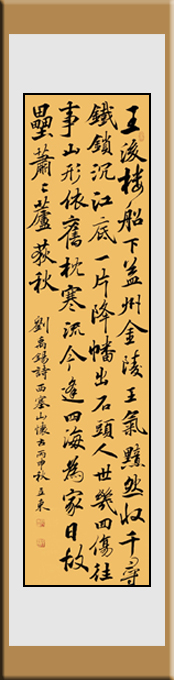 王浚楼船下益州金陵王氣黯然收千尋
鐵鎖沉江底一片降幡出石頭人世幾回傷往
事山形依舊枕寒流今逢四海為家日故
壘蕭〻蘆荻秋
劉禹錫詩西塞山懷古丙申秋